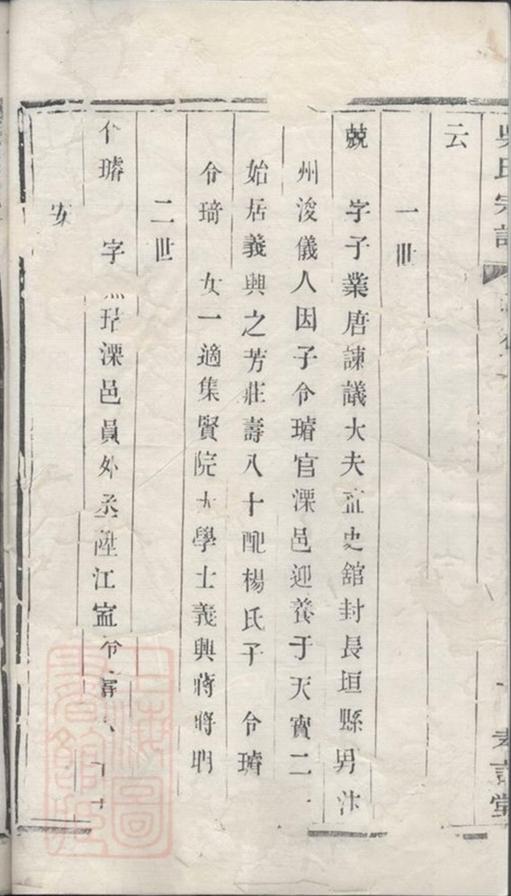 吳氏宗譜
云
一世
兢 字子業唐諫議大夫直史舘封長垣縣男汴
州浚儀人因子令璿官溧邑迎養于天寶二
始居義興之芳莊壽八十配楊氏子 令璿
令琦 女一適集賢院大學士義興蔣將明
二世
令璿 字 溧邑員外丞陞江寍令
安
上海圖書館藏